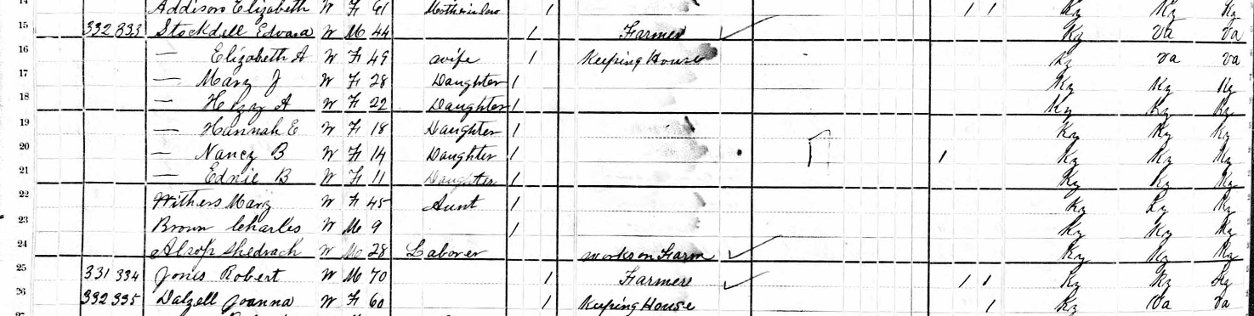 14 Addison Elizabeth W F 61 Mother in law 1 1 1 Ky Ky Ky
15 332 333 Stockdell Edward W M 44 1 Farmer Ky Va Va
16 — Elizabeth A W F 49 wife 1 Keeping House Ky Va Va
17 — Mary J W F 28 Daughter 1 Ky Ky Ky
18 — A W F 22 Daughter 1 Ky Ky Ky
19 — Hannah E W F 18 Daughter 1 Ky Ky Ky
20 — Nancy B W F 14 Daughter 1 1 Ky Ky Ky
21 — B W F 11 Daughter Ky Ky Ky
22 Withers Mary W F 45 Aunt 1 Ky Ky Ky
23 Brown Charles W M 9 1 Ky Ky Ky
24 Alsop Shedrach W M 28 Laborer works on Farm Ky Ky Ky
25 331 334 Jones Robert W M 70 1 Farmer 1 1 Ky Ky Ky
26 332 335 Dalzell Joanna W F 60 1 Keeping House 1 Ky Va Va